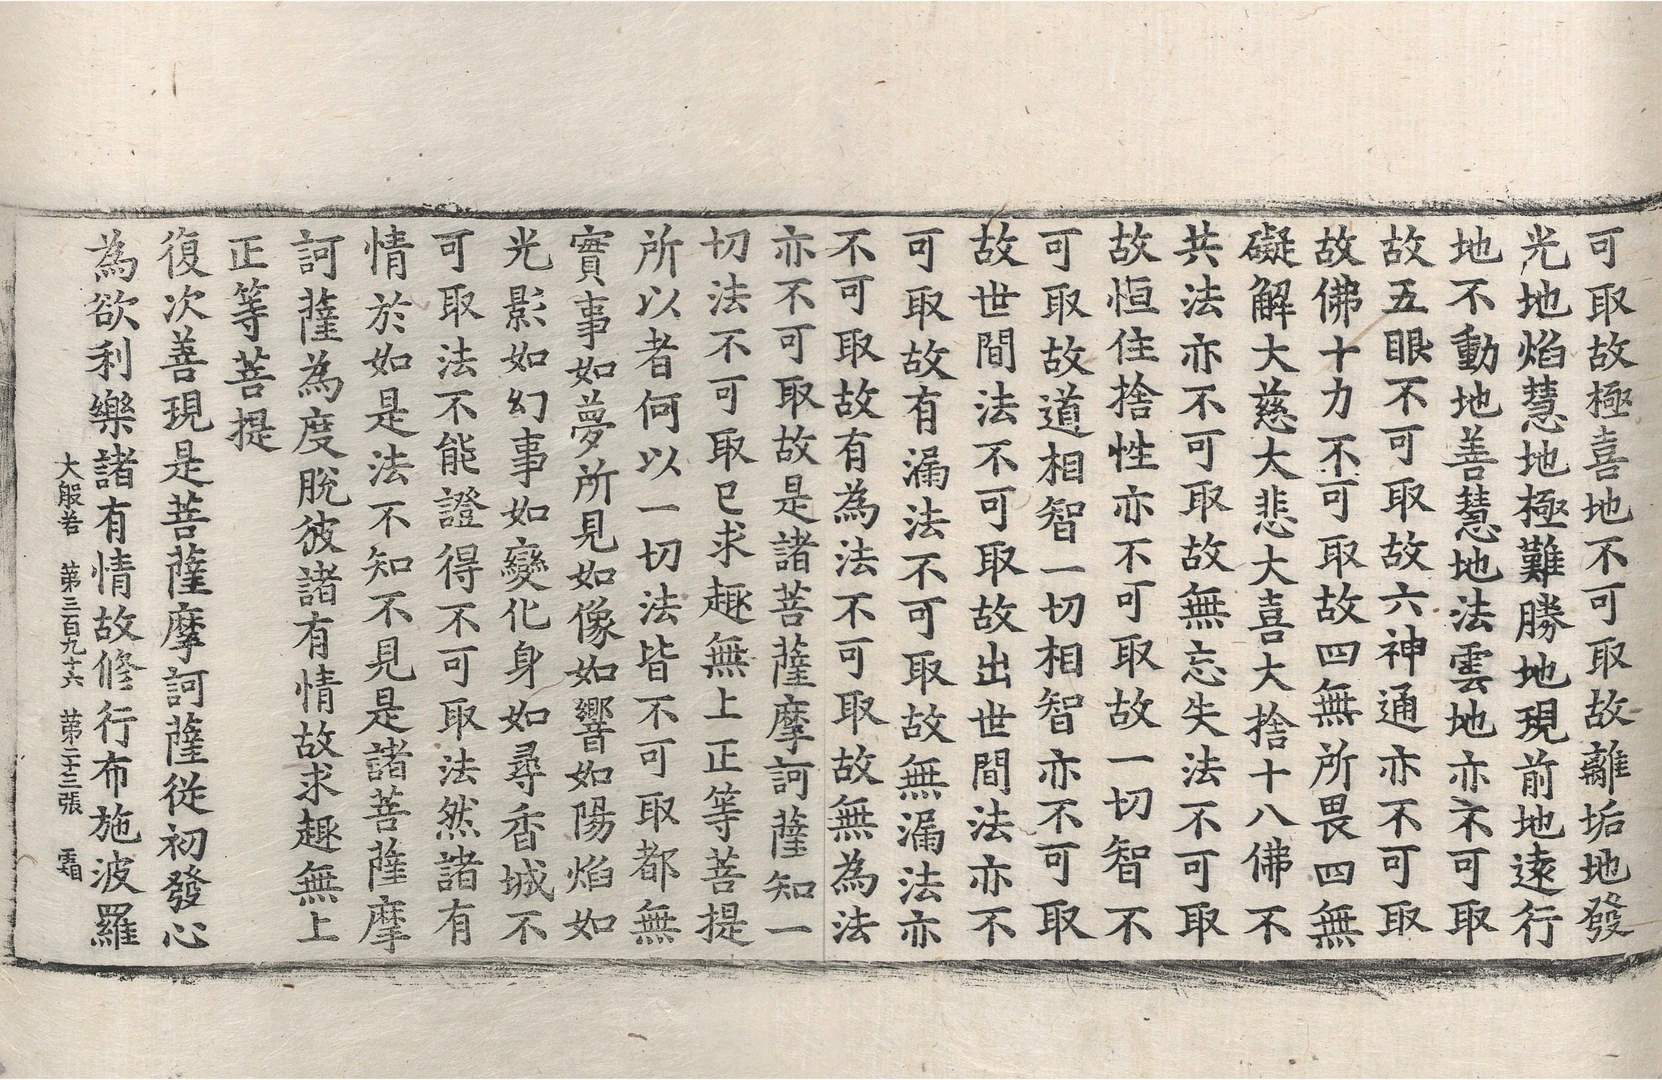 可取故極喜地不可取故離垢地發
光地焰慧地極難勝地現前地遠行
地不動地善慧地法雲地亦不可取
故五眼不可取故六神通亦不可取
故佛十力不可取故四無所畏四無
礙解大慈大悲大喜大捨十八佛不
共法亦不可取故無忘失法不可取
故恒住捨性亦不可取故一切智不
可取故道相智一切相智亦不可取
故世間法不可取故出世間法亦不
可取故有漏法不可取故無漏法亦
不可取故有為法不可取故無為法
亦不可取故是諸菩薩摩訶薩知一
切法不可取已求趣無上正等菩提
所以者何以一切法皆不可取都無
實事如夢所見如像如響如陽焰如
光影如幻事如變化身如尋香城不
可取法不能證得不可取法然諸有
情於如是法不知不見是諸菩薩摩
訶薩為度脫彼諸有情故求趣無上
正等菩提
復次善現是菩薩摩訶薩從初發心
為欲利樂諸有情故修行布施波羅
大般若　第三百九十六　第二十三張　霜